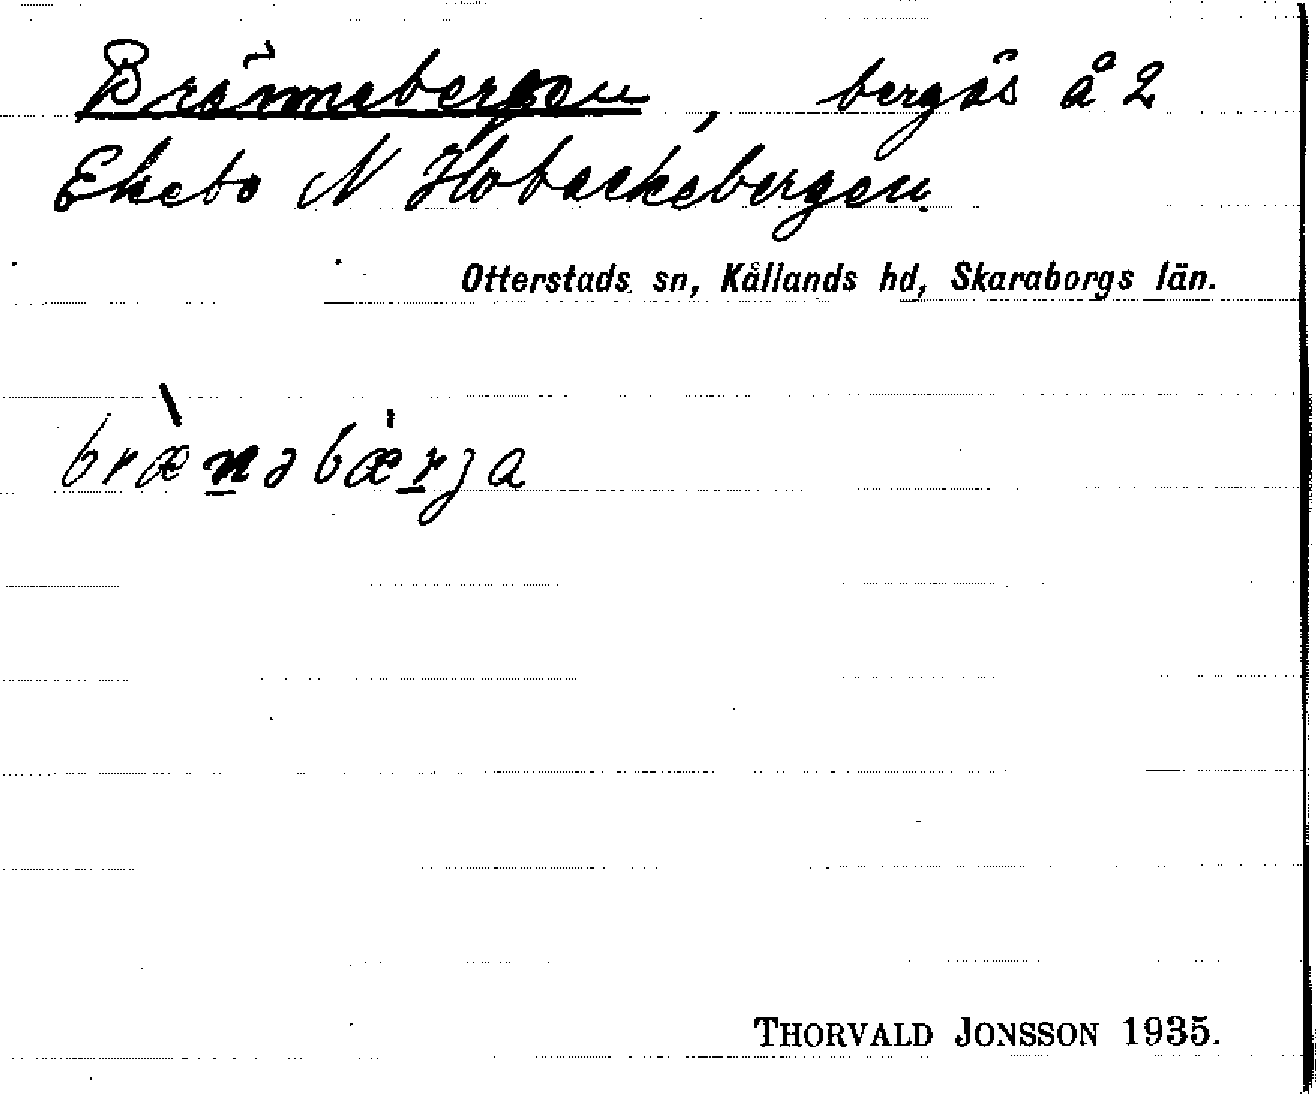 Brännebergen, bergås å 2
Ekebo N Hobackebergen.
Otterstads sn, Kållands hd, Skaraborgs län.
bræ̀nəbæ̍rja
THORVALD JONSSON 1935.